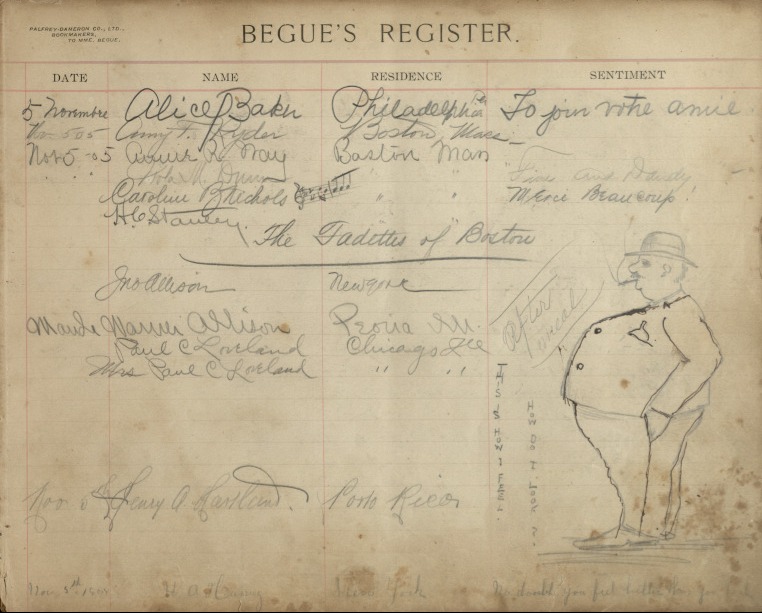 PALFREY-DAMERON CO., LTD.,
BOOKMAKERS,
TO MME. BEGUE.
BEGUE'S REGISTER.
DATE NAME RESIDENCE SENTIMENT
5 Novembre Alice Baker Philadelphia Pa To join votre amie
Nov 5 05 Amy F. Ryder Boston, Mass
Nov 5 - 05 Annie R. May Boston Mass
Fine and Dandy
Caroline B Nichols " " Merie Beaucoup!
H C Stanley.
The Fadettes of Boston
Jno Allison New york
Maude Warner Allison Peoria Ill.
Paul C Loveland Chicago Ill
Mrs Paul C Loveland " "
After meal
THIS IS HOW I FEEL.
HOW DO I LOOK ?
Nov. 5 Henry A Porto Rico
Nov. 5th New York No doubt you feel